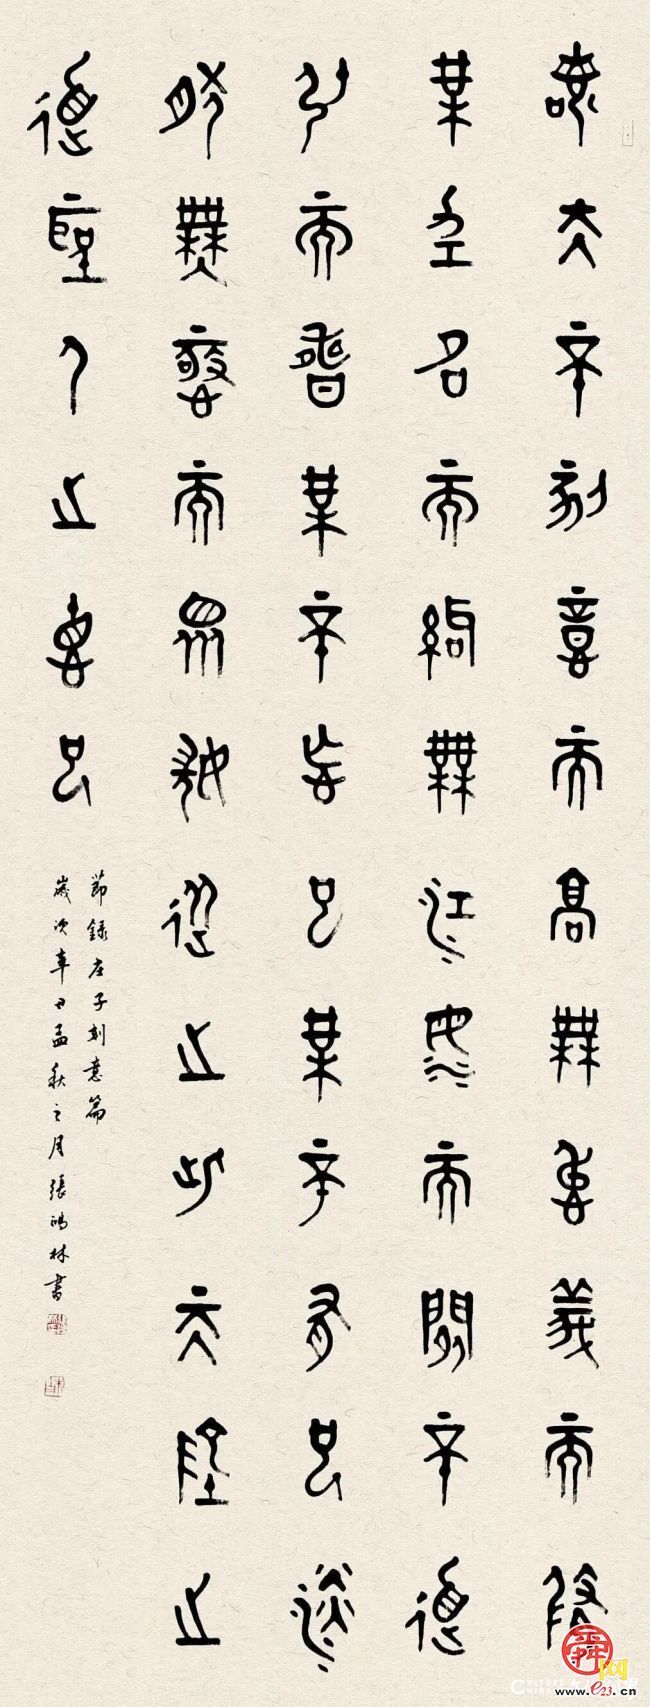 若夫不刻意而高無仁義而修
無功名而治無江海而閒不道
引而壽無不忘也無不有也澹
然無極而眾美從之此天地之
道聖人之德也
節錄庄子刻意篇
歲次辛丑孟秋之月張鴻林書
舜网
www.e23.cn